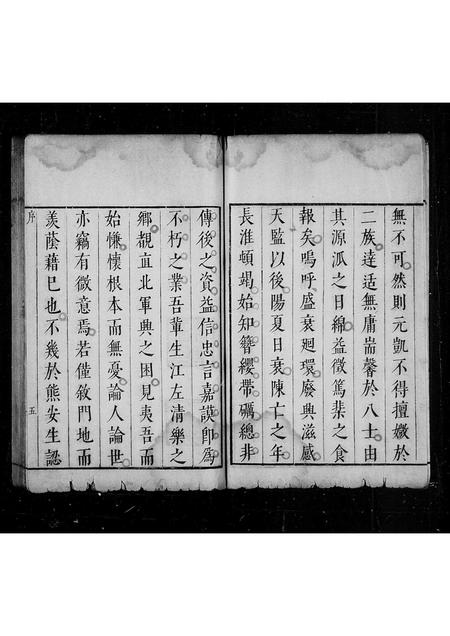 無不可然則元凱不得擅媺於
二族達适無庸耑馨於八士由
其源泒之日綿益徵篤棐之食
報矣嗚呼盛衰迴環廢興滋感
天監以後陽夏日衰陳亡之年
長淮頓竭始知簪纓帶礪總非
傳後之資益信忠言嘉謨即為
不朽之業吾輩生江左清樂之
鄉覩直北軍興之困見夷吾而
始慊懷根本而無憂論人論世
亦竊有微意焉若僅敘門地而
羨蔭藉已也不幾於熊安生認
序 五